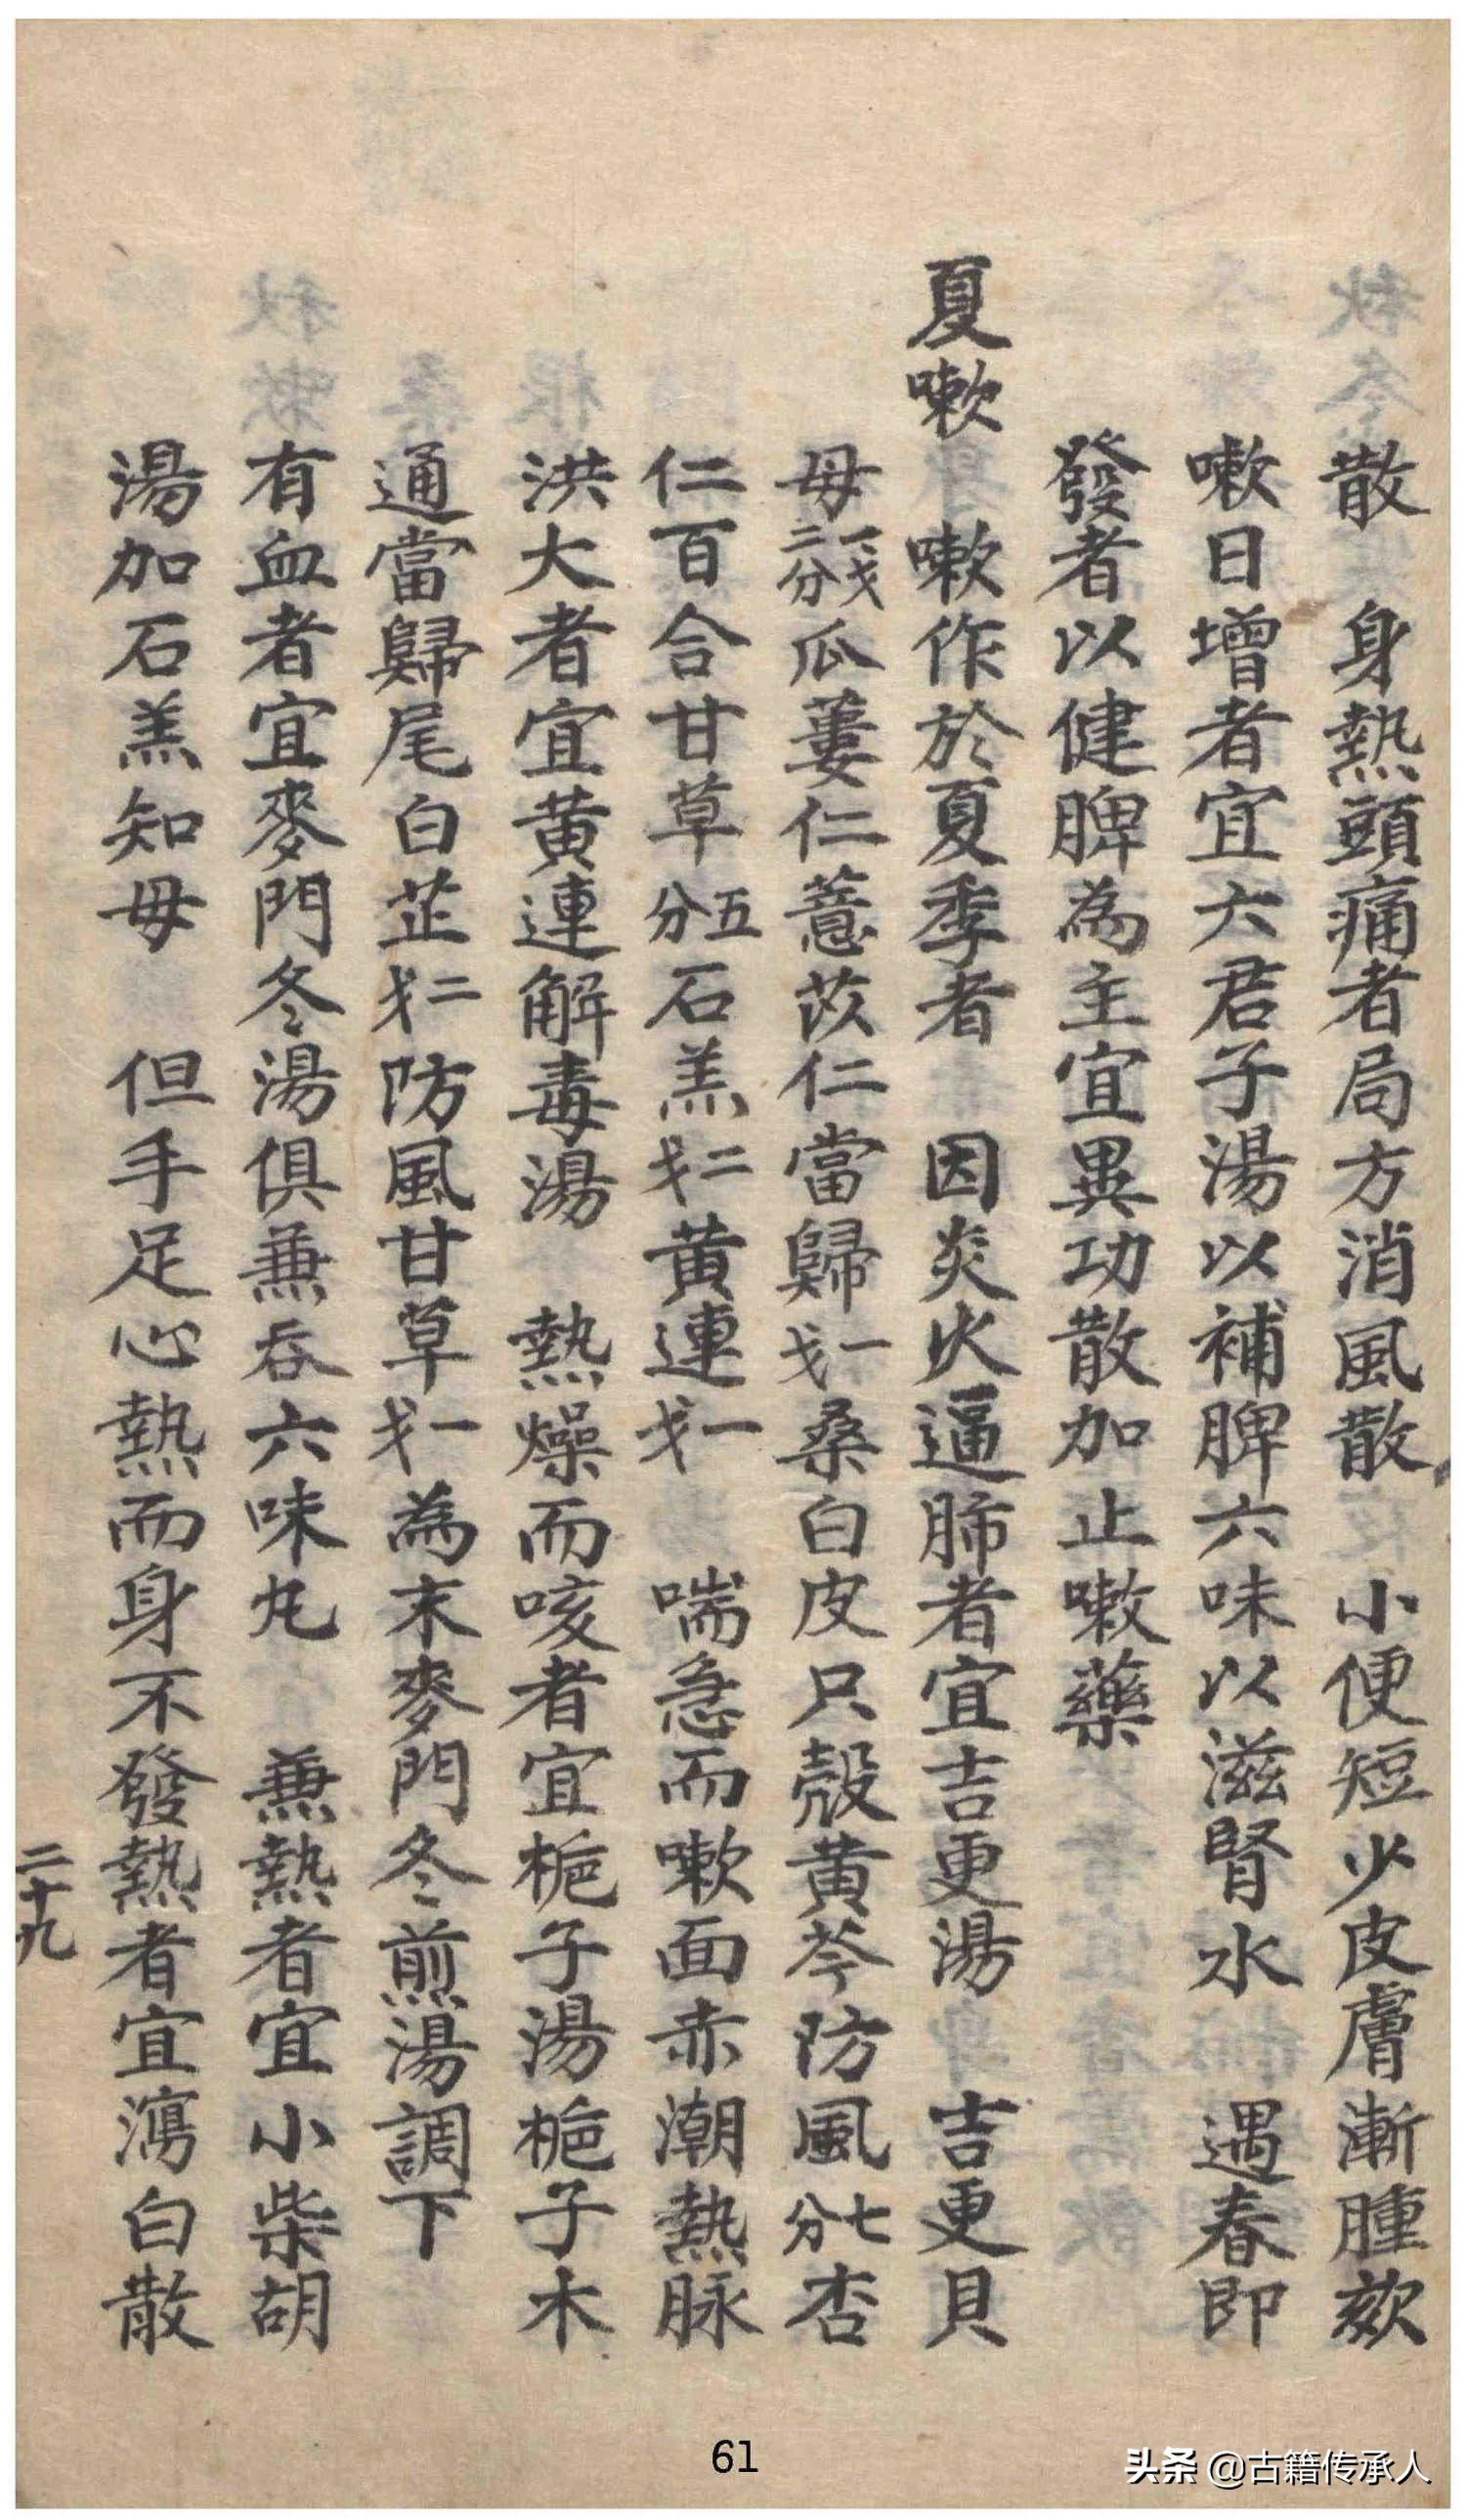 散　身熱頭痛者局方消風散　小便短少皮膚漸腫欬
嗽日增者宜六君子湯以補脾六味以滋腎水　遇春即
發者以健脾為主宜異功散加止嗽藥
夏嗽　嗽作於夏季者　因炎火逼肺者宜吉更湯　吉更貝
母一戈二分瓜蔞仁薏苡仁當歸一戈桑白皮只殼黃芩防風七分杏
仁百合甘草五分石羔二戈黃連一戈　喘急而嗽面赤潮熱脉
洪大者宜黃連解毒湯　熱燥而咳者宜梔子湯梔子木
通當歸尾白芷二戈防風甘草一戈為末麥門冬煎湯調下
有血者宜麥門冬湯俱兼吞六味丸　兼熱者宜小柴胡
湯加石羔知母　但手足心熱而身不發熱者宜瀉白散
二十九
61
头条 @古籍传承人